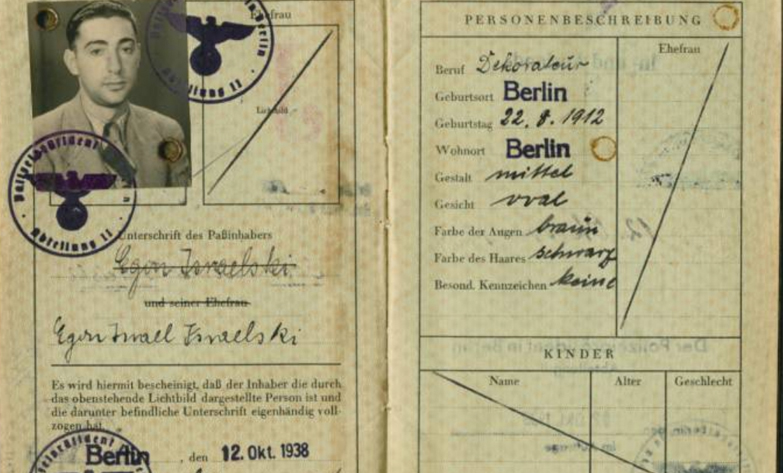 Ehefrau
Lichtbild
Polizeipräsident in Berlin
Abteilung II
Polizeipräsident
Abteilung II
Unterschrift des Paßinhabers
Egon Israelski
und seiner Ehefrau
Egon Israel Israelski
Es wird hiermit bescheinigt, daß der Inhaber die durch
das obenstehende Lichtbild dargestellte Person ist und
die darunter befindliche Unterschrift eigenhändig voll-
zogen hat.
Berlin, den 12. Okt. 1938
PERSONENBESCHREIBUNG
Ehefrau
Beruf Dekorateur
Geburtsort Berlin
Geburtstag 22. 8. 1912
Wohnort Berlin
Gestalt mittel
Gesicht oval
Farbe der Augen braun
Farbe des Haares schwarz
Besond. Kennzeichen keine
KINDER
Name Alter Geschlecht